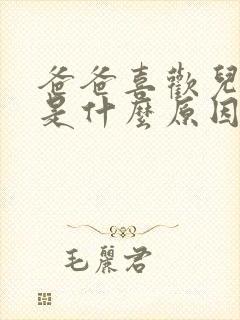 爸爸喜歡兒
是什麼原因
毛麗君